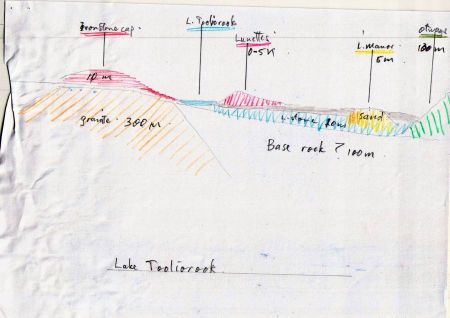 Ironstone cap
L. Tooliorook
Lunettes
0-5m
L. Manor
5m
100m
10 m
granite 300m
sand
Base rock ? 100m
Lake Tooliorook